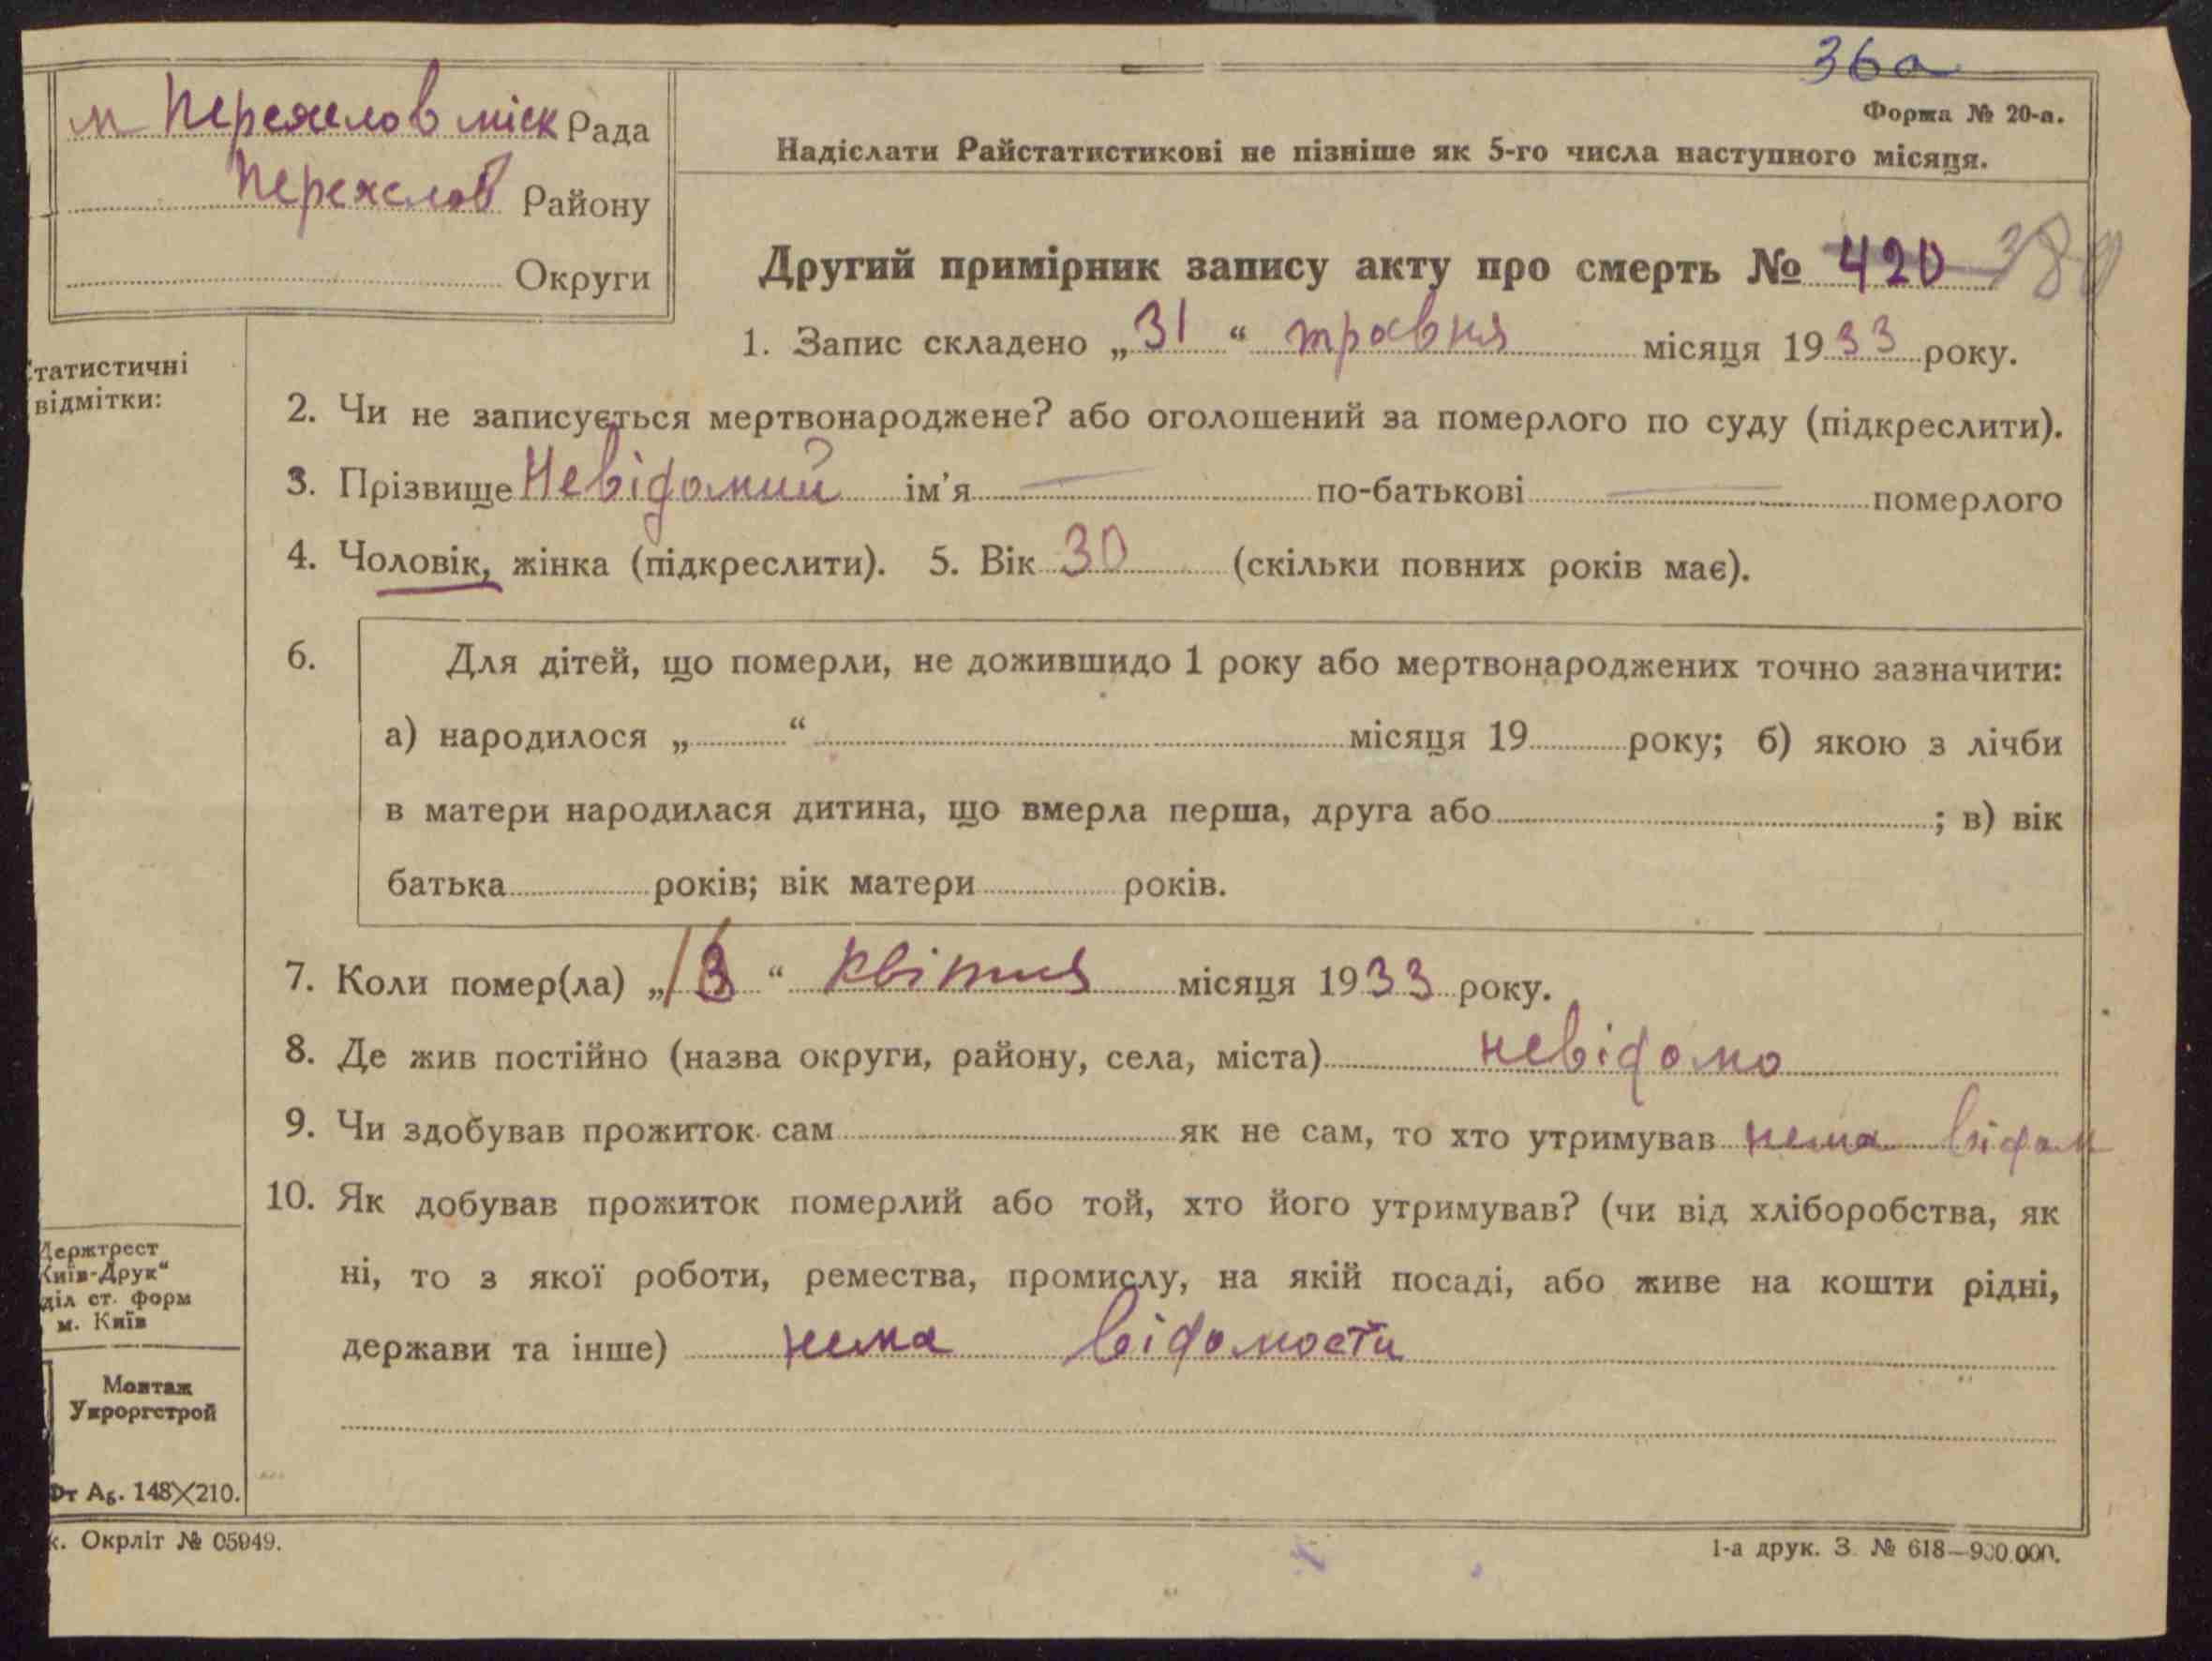 36а
м Переяслов міск Рада
Переяслов Району
Округи
Форма № 20-а.
Надіслати Райстатистикові не пізніше як 5-го числа наступного місяця.
Другий примірник запису акту про смерть № 420
1. Запис складено „31“ травня місяця 1933 року.
татистичні
відмітки:
2. Чи не записується мертвонароджене? або оголошений за померлого по суду (підкреслити).
3. Прізвище Невідомий ім'я — по-батькові — померлого
4. Чоловік, жінка (підкреслити). 5. Вік 30 (скільки повних років має).
6. Для дітей, що померли, не дожившидо 1 року або мертвонароджених точно зазначити:
а) народилося „ “ місяця 19 року; б) якою з лічби
в матери народилася дитина, що вмерла перша, друга або ; в) вік
батька років; вік матери років.
7. Коли помер(ла) „ “ квітня місяця 1933 року.
8. Де жив постійно (назва округи, району, села, міста) невідомо
9. Чи здобував прожиток сам як не сам, то хто утримував нема відом
10. Як добував прожиток померлий або той, хто його утримував? (чи від хліборобства, як
ні, то з якої роботи, ремества, промислу, на якій посаді, або живе на кошти рідні,
держави та інше) нема відомости
Держтрест
Київ-Друк“
діл ст. форм
м. Київ
Монтаж
Укроргстрой
Фт А5. 148×210.
к. Окрліт № 05949.
1-а друк. З. № 618—900.000.